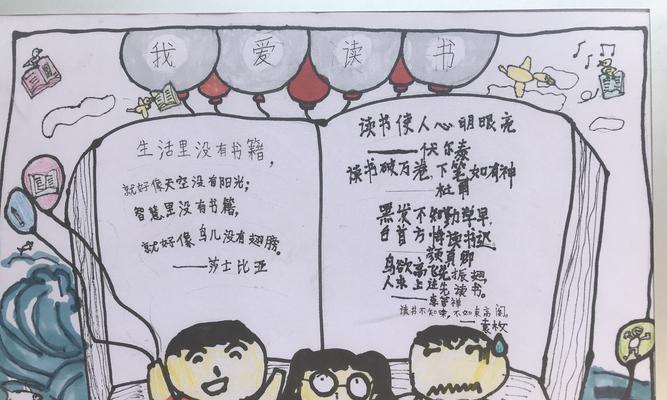 我爱读书
生活里没有书籍，
就好像天空没有阳光；
智慧里没有书籍，
就好像鸟儿没有翅膀。
——莎士比亚
读书使人心明眼亮
——伏尔泰
读书破万卷，下笔如有神
——杜甫
黑发不知勤学早，
白首方悔读书迟
颜真卿
鸟欲高飞先振翅
人求上进先读书。
——李苦禅
读书不知味，不如束高阁。
——袁枚